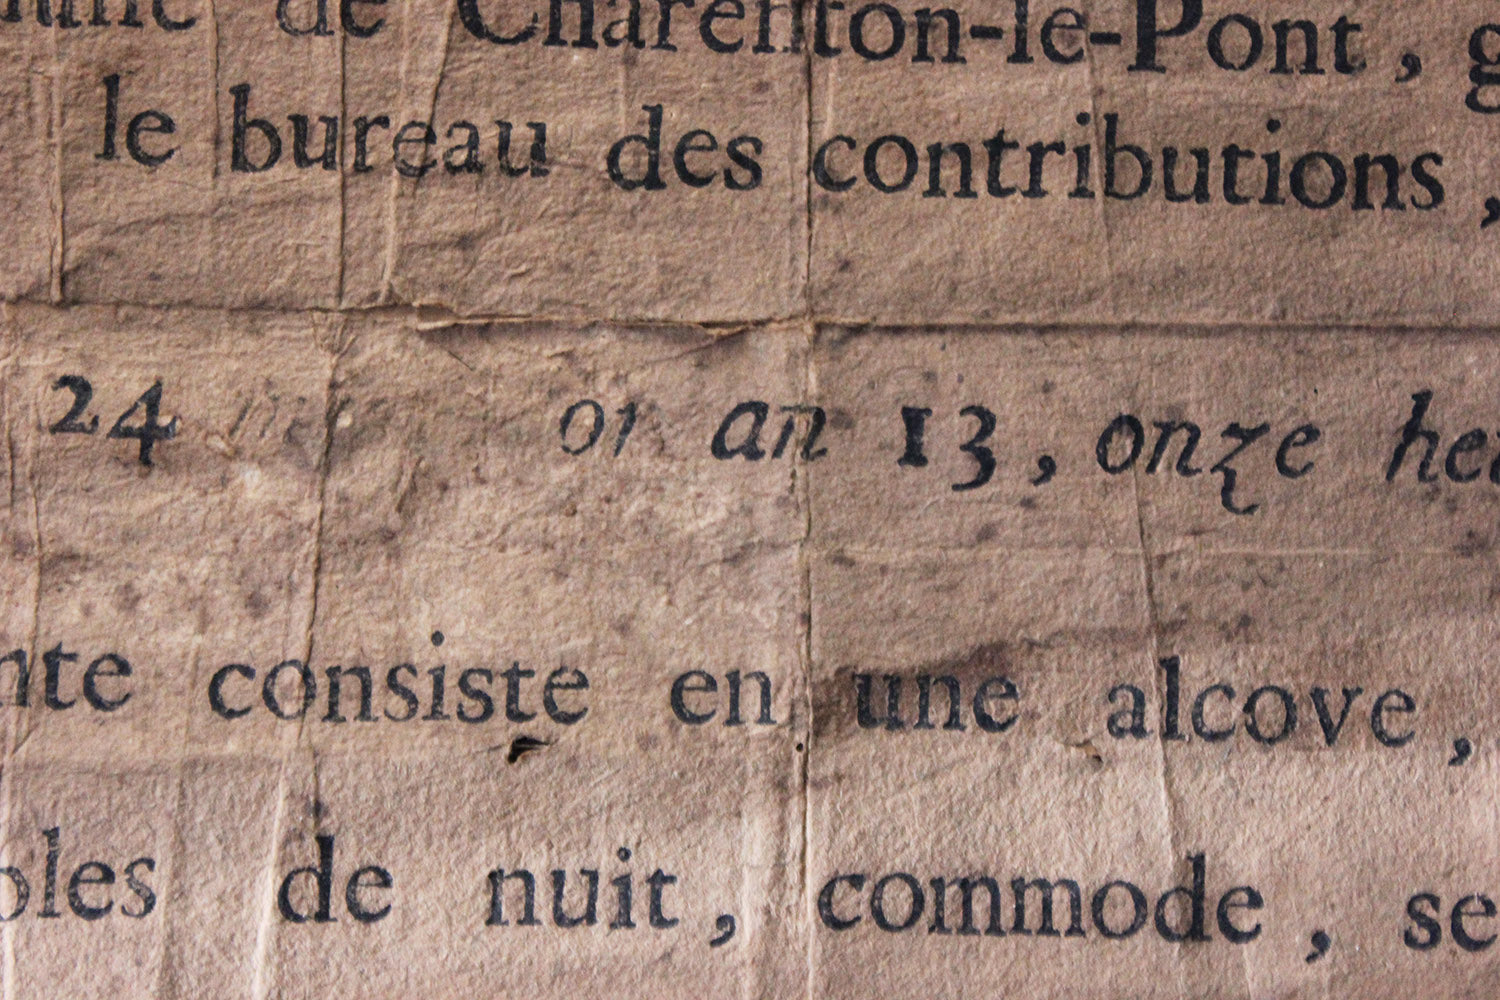 de Charenton-le-Pont,
le bureau des contributions,
24 an 13, onze
consiste en une alcove,
de nuit, commode,